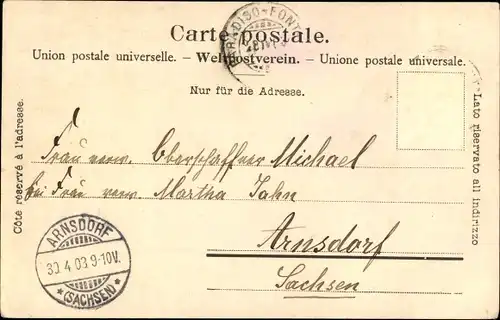 Carte postale.
Union postale universelle. – Weltpostverein. – Unione postale universale.
Nur für die Adresse.
Côte réservé à l'adresse.
Lato riservato all indirizzo
Frau verw. Oberschaffner Michael
bei Frau verw. Martha Jahn
Arnsdorf
Sachsen
ARNSDORF
30 4 03 9-10V.
*(SACHSEN)*